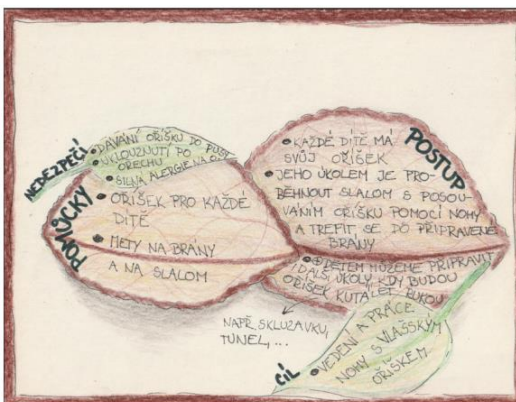 NEBEZPEČÍ
• DÁVÁNÍ OŘÍŠKU DO PUSY
• UKLOUZNUTÍ PO
OŘECHU
• SILNÁ ALERGIE NA
POMŮCKY
• OŘÍŠEK PRO KAŽDÉ
DÍTĚ
• METY NA BRÁNY
A NA SLALOM
POSTUP
• KAŽDÉ DÍTĚ MÁ
SVŮJ OŘÍŠEK
• JEHO ÚKOLEM JE PRO-
BĚHNOUT SLALOM S POSOU-
VÁNÍM OŘÍŠKU POMOCÍ NOHY
A TREFIT SE DO PŘIPRAVENÉ
BRÁNY
• DĚTEM MŮŽEME PŘIPRAVIT
I DALŠÍ ÚKOLY, KDY BUDOU
OŘÍŠEK KUTÁLET RUKOU
NAPŘ. SKLUZAVKU,
TUNEL,...
CÍL
• VEDENÍ A PRÁCE
NOHY S VLAŠSKÝM
OŘÍŠKEM